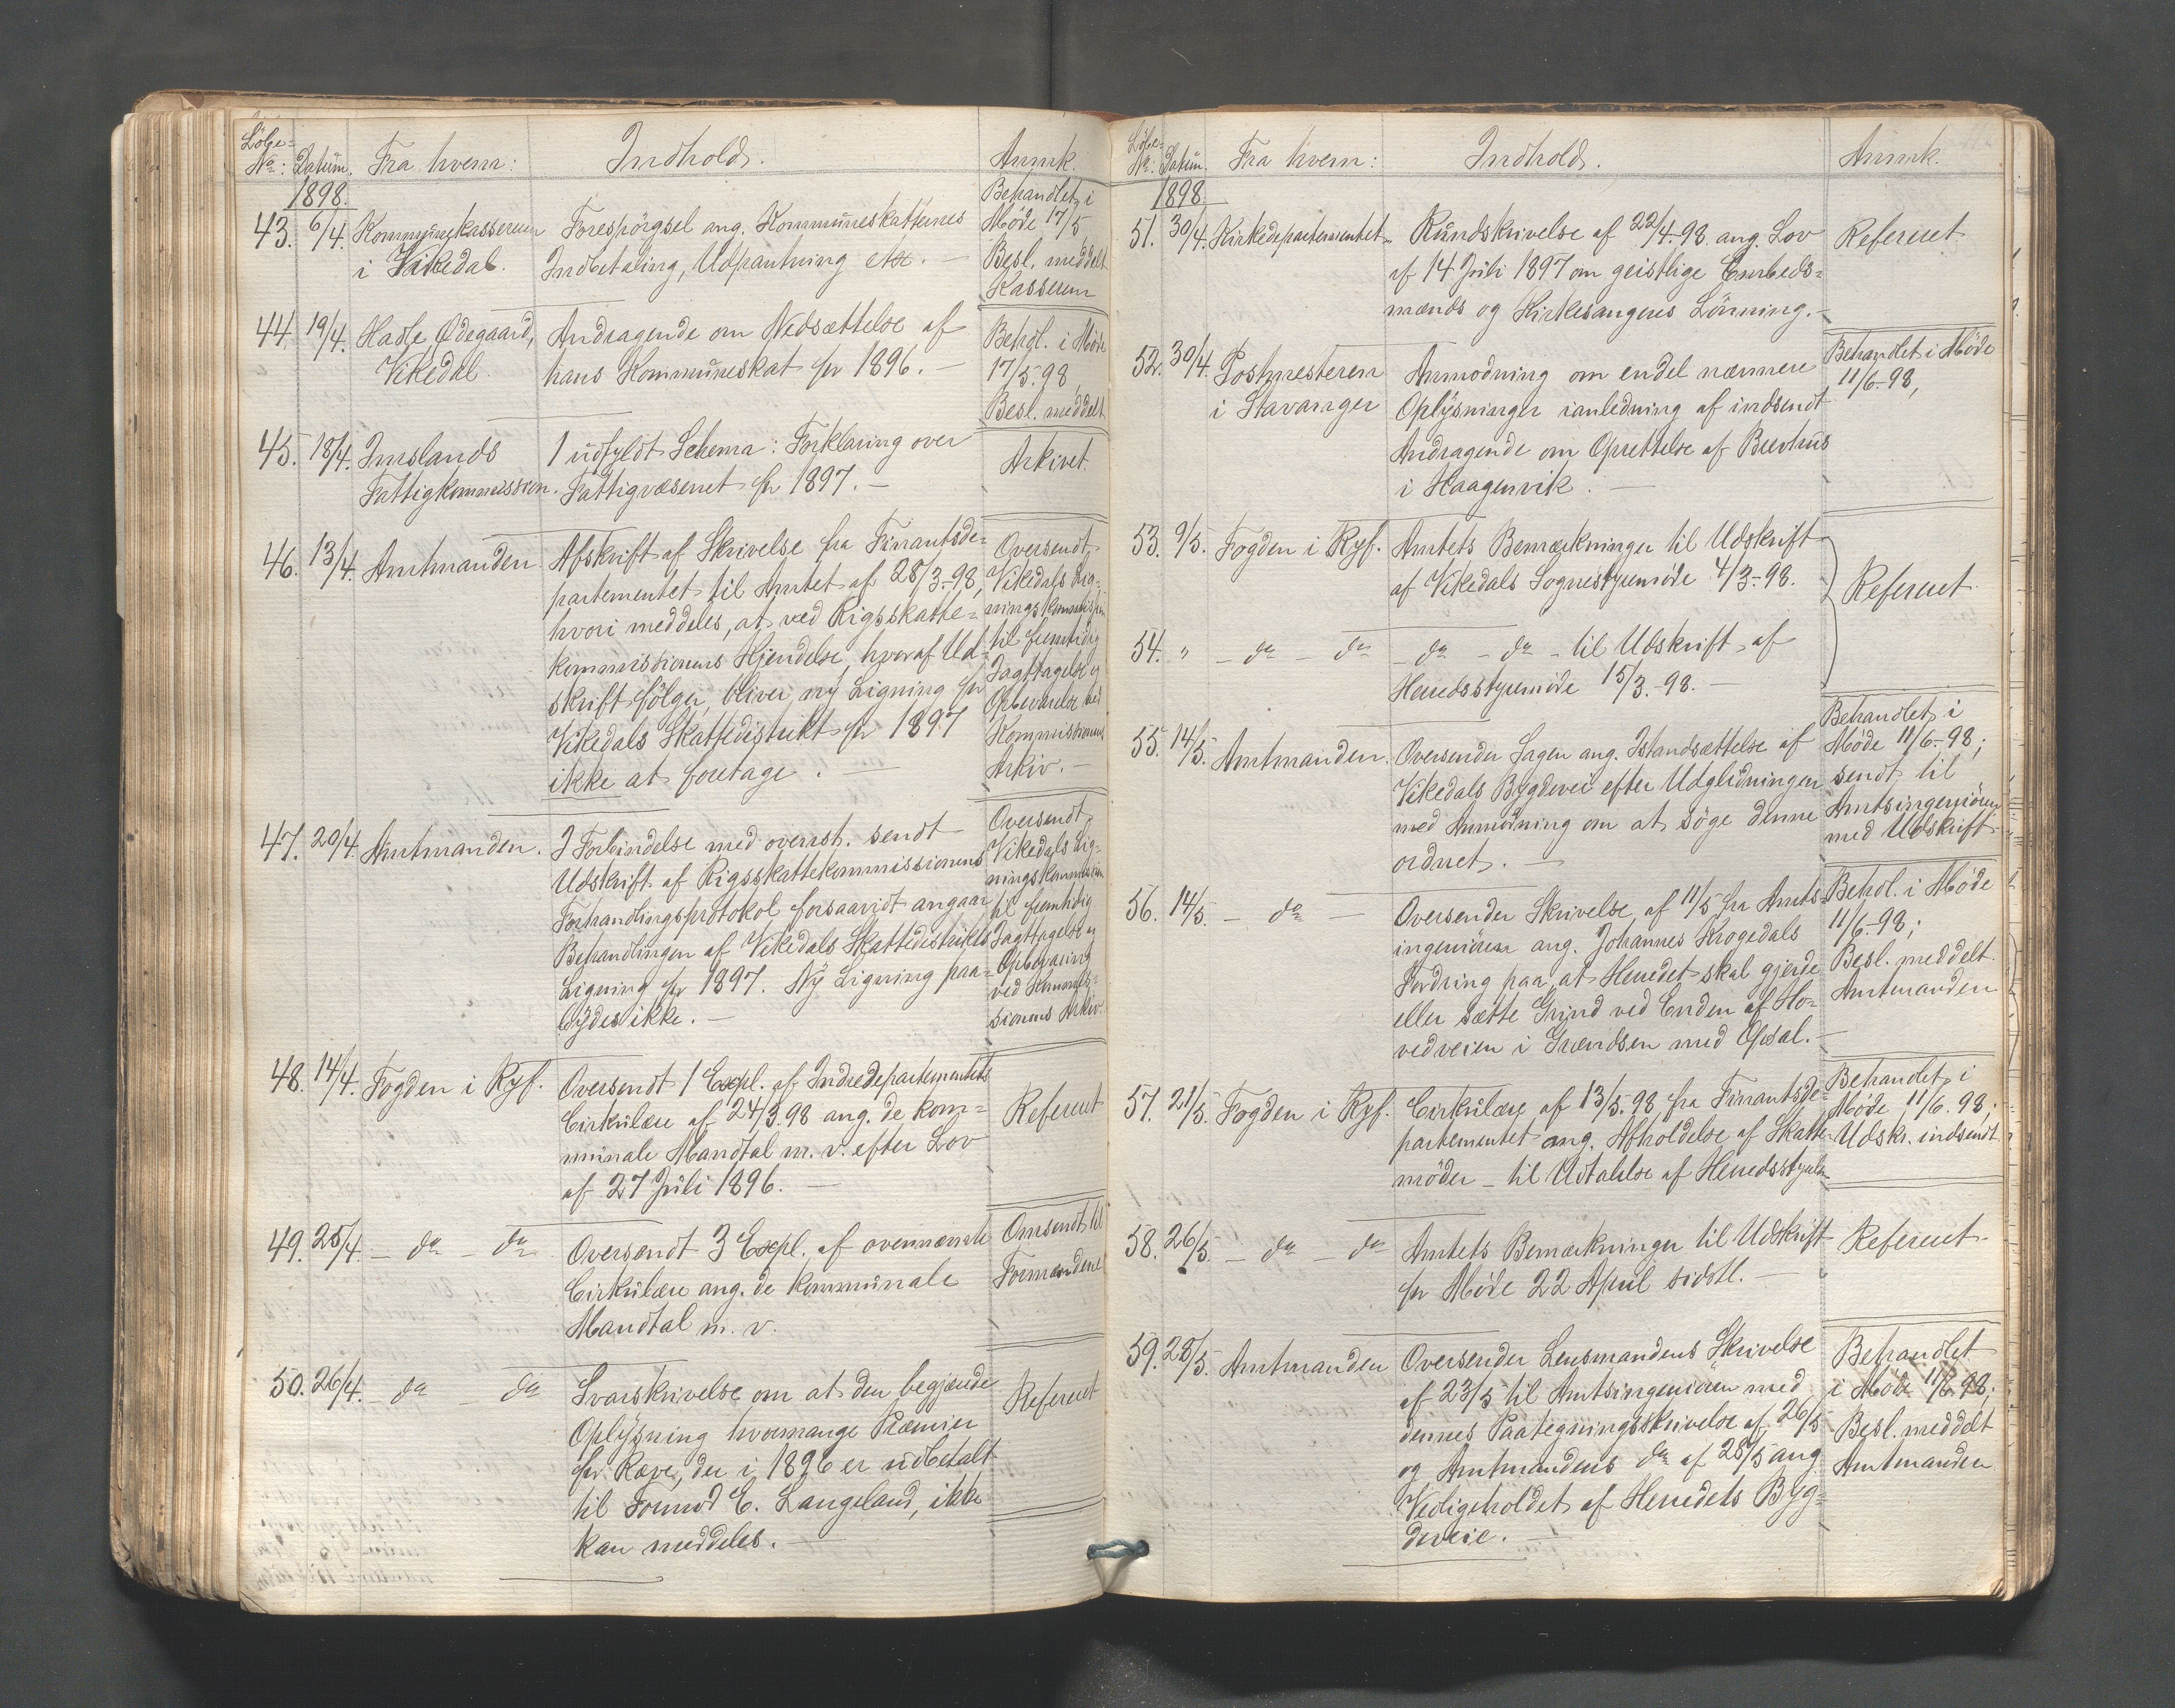 Löbe-
No: Datum. Fra hvem: Indhold. Anmk.
1898.
43. 6/4. Kommunekassereren Forespörgsel ang. Kommuneskatternes Behandlet i
i Vikedal. Indbetaling, Udpantning etc. — Möde 17/5
Besl. meddelt
Kassereren
44. 19/4. Hadle Ödegaard, Andragende om Nedsættelse af Behdl. i Möde
Vikedal. hans Kommuneskat for 1896. — 17/5 98,
Besl. meddelt
45. 18/4. Imslands 1 udfyldt Schema: Forklaring over Arkivet.
Fattigkommission. Fattigvæsenet for 1897. —
46. 13/4. Amtmanden. Afskrift af Skrivelse fra Finantsde- Oversendt
partementet til Amtet af 28/3-98, Vikedals Lig-
hvori meddeles, at ved Rigsskatte- ningskommission
kommissionens Kjendelse, hvoraf Ud- til fremtidig
skrift fölger, bliver ny Ligning for Iagttagelse og
Vikedals Skattedistrikt for 1897 Opbevarelse ved
ikke at foretage. — Kommissionens
Arkiv. —
47. 20/4. Amtmanden. I Forbindelse med ovenst. sendt Oversendt
Udskrift af Rigsskattekommissionens Vikedals Lig-
Forhandlingsprotokol forsaavidt angaar ningskommission
Behandlingen af Vikedals Skattedistrikts til fremtidig
Ligning for 1897. Ny Ligning paa- Iagttagelse og
bydes ikke. — Opbevaring
ved Kommis-
sionens Arkiv.
48. 14/4. Fogden i Ryf. Oversendt 1 Expl. af Indredepartementets
Cirkulære af 24/3 98 ang. de kom- Referert
munale Mandtal m. v. efter Lov
af 27 Juli 1896. —
49. 25/4. — do — do Oversendt 3 Expl. af ovennævnte Omsendt til
Cirkulære ang. de kommunale Formændene
Mandtal m. v.
50. 26/4. — do — do Svarskrivelse om at den begjærede Referert
Oplysning hvormange Præmier
for Ræve, der i 1896 er udbetalt
til Formd E. Langeland, ikke
kan meddeles. —
Löbe-
No: Datum. Fra hvem: Indhold. Anmk.
1898.
51. 30/4. Kirkedepartementet. Rundskrivelse af 22/4-98 ang. Lov Referert
af 14 Juli 1897 om geistlige Embeds-
mænds og Kirkesangeres Lönning. —
52. 30/4. Postmesteren Anmodning om endel nærmere Behandlet i Möde
i Stavanger Oplysninger ianledning af indsendt 11/6-98,
Andragende om Oprettelse af Brevhus
i Haagenvik. —
53. 9/5. Fogden i Ryf. Amtets Bemærkninger til Udskrift
af Vikedals Sognestyremöde 4/3-98. Referert
54. " — do — do — do — do — til Udskrift af
Herredsstyremöde 15/3-98. —
55. 14/5. Amtmanden. Oversender Sagen ang. Istandsættelse af Behandlet i
Vikedals Bygdevei efter Udglidningen Möde 11/6-98;
med Anmodning om at söge denne sendt til
ordnet. — Amtsingeniören
med Udskrift
56. 14/5. — do — Oversender Skrivelse af 11/5 fra Amts- Behdl. i Möde
ingeniören ang. Johannes Krogedals 11/6-98;
Fordring paa, at Herredet skal gjerde Besl. meddelt
eller sætte Grind ved Enden af Ho- Amtmanden
vedveien i Grændsen med Opsal. —
57. 21/5. Fogden i Ryf. Cirkulære af 13/5-98 fra Finantsde- Behandlet i
partementet ang. Afholdelse af Skatte- Möde 11/6. 98;
möder — til Udtalelse af Herredsstyrelsen Udskr. indsendt
58. 26/5. — do — do Amtets Bemærkninger til Udskrift Referert
for Möde 22 April sidstl. —
59. 28/5. Amtmanden Oversender Lensmandens Skrivelse Behandlet
af 23/5 til Amtsingeniören med i Möde 11/6 98;
dennes Paategningsskrivelse af 26/5 Besl. meddelt
og Amtmandens do af 28/5 ang. Amtmanden
Vedligeholdet af Herredets Byg-
deveie. —